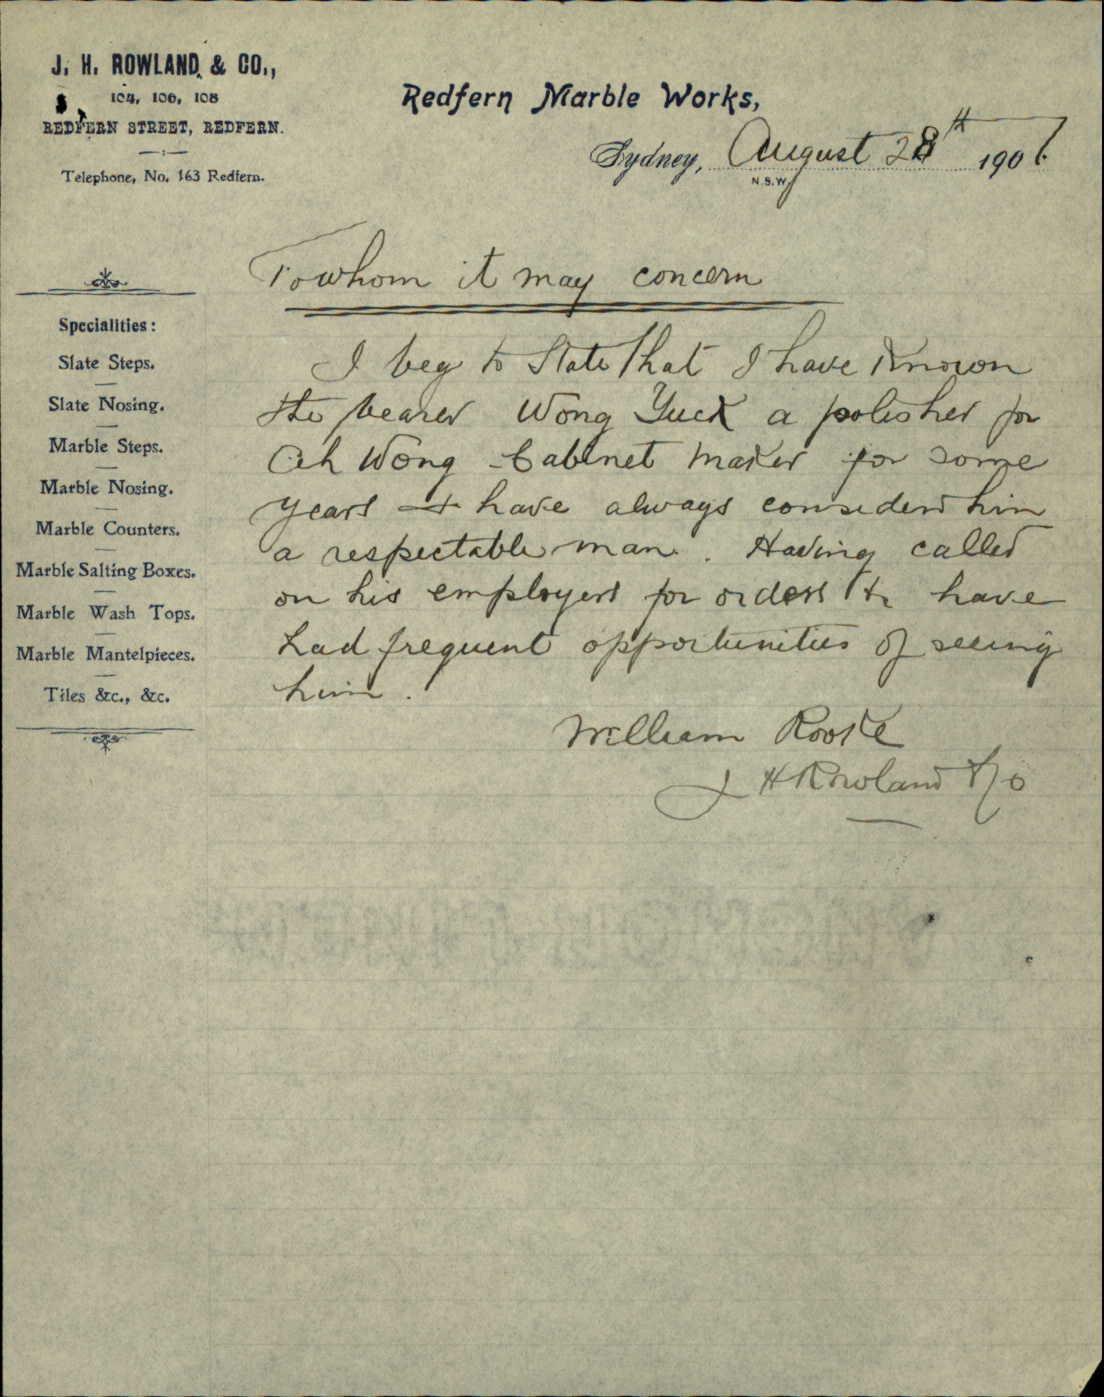 J. H. ROWLAND & CO.,
104, 106, 108
REDFERN STREET, REDFERN.
Telephone, No. 163 Redfern.
Redfern Marble Works,
Sydney, August 28th 1907.
N.S.W.
Specialities:
Slate Steps.
Slate Nosing.
Marble Steps.
Marble Nosing.
Marble Counters.
Marble Salting Boxes.
Marble Wash Tops.
Marble Mantelpieces.
Tiles &c., &c.
To whom it may concern
I beg to State that I have Known
the bearer Wong Yuck a polisher for
Ah Wong Cabinet maker for some
years & have always considerd him
a respectable man. Having called
on his employers for orders & have
had frequent opportunities of seeing
him.
William Rooke
J H Rowland & Co